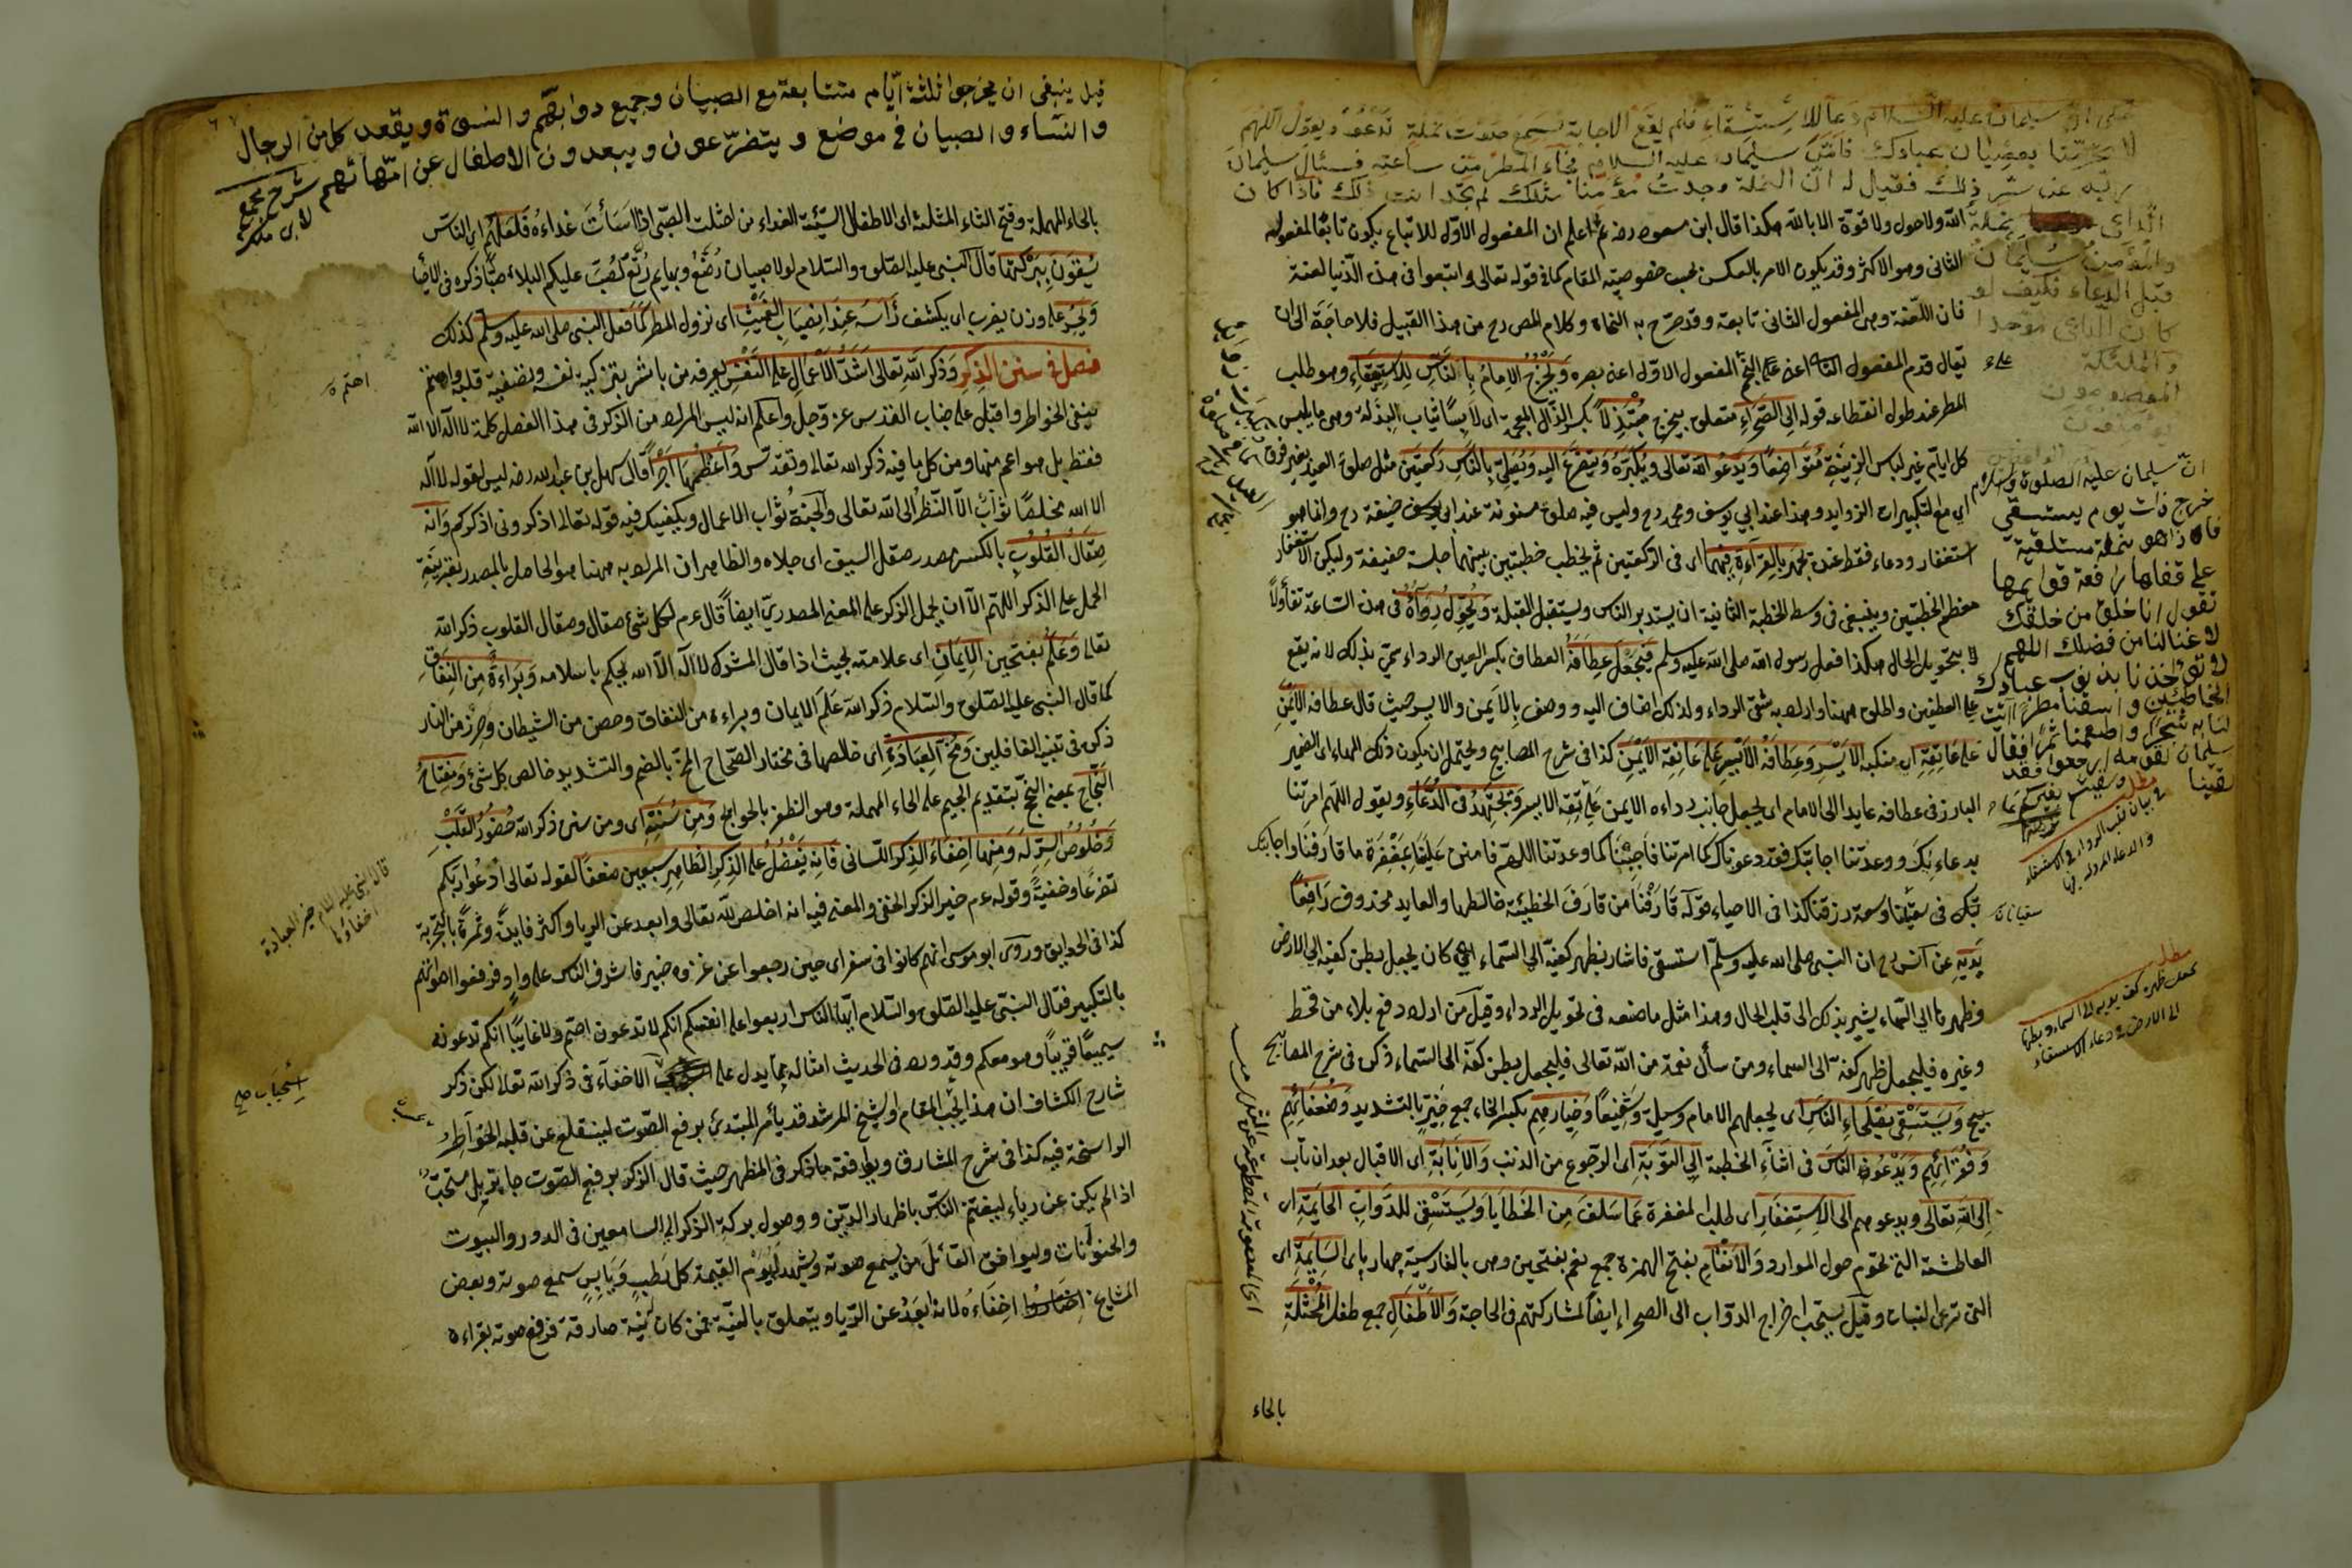 حكى ان سليمان عليه السلام دعا للاستسقاء فلم يقع الاجابة فسمع صوت نملة تدعو وتقول اللهم
لا بعصيان عبادك سليمان عليه السلام فجاء المطر من ساعته فسئال سليمان
ربه عن سر ذلك فقيل له ان النملة وجدت مؤمنا مثلك لم تجد انت ذلك فاذا كان
الداعى نملة
والمؤمن سليمان
قبل الدعاء فكيف لو
كان الداعى موحدا
والملئكة
المعصومون
يؤمنون
الله ولا حول ولا قوة الا بالله هكذا قال ابن مسعود رضه ثم اعلم ان المفعول الاول للاتباع يكون تابعا للمفعول
الثانى وهو الاكثر وقد يكون الامر بالعكس بحسب خصوصية المقام كما فى قوله تعالى واتبعوا فى هذه الدنيا لعنة
فان اللعنة وهى المفعول الثانى تابعة وقد صرح به النحاة وكلام المص رح من هذا القبيل فلا حاجة الى ان
يقال قدم المفعول الثانى اعنى على المفعول الاول اعنى بصره ويخرج الامام بالناس للاستسقاء وهو طلب
المطر عند طول انقطاعه قوله الى الصحراء متعلق بيخرج متبذلا بكسر الذال المعجمة اى لابسا ثياب البذلة وهى ما يلبس
كل ايام غير لباس الزينة متواضعا ويدعو الله تعالى ويكبره ويتضرع اليه ويصلى بالناس ركعتين مثل صلوة العيد بغير فرق
اى مع التكبيرات الزوايد وهذا عند ابى يوسف ومحمد رح وليس فيه صلوة مسنونة عند ابى حنيفة رح وانما هو
استغفار ودعاء فقط عنده يجهر بالقراءة فيهما اى فى الركعتين ثم يخطب خطبتين بينهما جلسة خفيفة وليكن الاستغفار
معظم الخطبتين وينبغى فى وسط الخطبة الثانية ان يستدبر الناس ويستقبل القبلة ويحول رداءه فى هذه الساعة تفأولا
بتحويل الحال هكذا فعل رسول الله صلى الله عليه وسلم فيجعل عطافه العطاف بكسر العين الرداء سمى بذلك لانه يقع
على العطفين والمراد ههنا شق الرداء ولذلك اضاف اليه ووصف بالايمن والايسر حيث قال عطافه الايمن
على عاتقه اى منكبه الايسر وعطافه الايسر على عاتقه الايمن كذا فى شرح المصابيح ويحتمل ان يكون ذلك الهاء اى الضمير
البارز فى عطافه عايدا الى الامام اى يجعل جانب رداءه الايمن على عاتقه الايسر ويجتهد فى الدعاء ويقول اللهم امرتنا
بدعاءك ووعدتنا اجابتك فقد دعوناك كما امرتنا فاجبنا كما وعدتنا اللهم فامنن علينا بمغفرة ما قارفنا واجابتك
فى سقينا وسعة رزقنا كذا فى الاحياء قوله قارفنا من قارف الخطيئة خالطها والعايد محذوف رافعا
يديه عن انس رح ان النبى صلى الله عليه وسلم استسقى فاشار بظهر كفيه الى السماء اى كان يجعل بطن كفيه الى الارض
وظهرهما الى السماء يشير بذلك الى قلب الحال وهذا مثل ما صنعه فى تحويل الرداء وقيل من اراد دفع بلاء من قحط
وغيره فليجعل ظهر كفه الى السماء ومن سأل نعمة من الله تعالى فليجعل بطن كفه الى السماء ذكره فى شرح المصابيح
ويستسقى بصلحاء الناس اى يجعلهم الامام وسيلة وشفيعا وخيارهم بكسر الخاء جمع خير بالتشديد وضعفائهم
وفقرائهم ويدعو الناس فى اثناء الخطبة الى التوبة اى الرجوع من الذنب والانابة اى الاقبال بعد ان تاب
الى الله تعالى ويدعوهم الى الاستغفار اى طلب المغفرة عما سلف من الخطايا ويستسقى للدواب الحايمة اى
العاطشة التى تحوم حول الموارد والانعام بفتح الهمزة جمع نعم بفتحتين وهى بالفارسية چهار پاى السايمة اى
التى ترعى النبات وقيل يستحب اخراج الدواب الى الصحراء ايضا لمشاركتهم فى الحاجة والاطفال جمع طفل المحثلة
بالحاء
ان سليمان عليه الصلوة والسلام
خرج ذات يوم يستسقى
فاذا هو بنملة مستلقية
على قفاها رافعة قوايمها
تقول انا خلق من خلقك
لا غنا لنا من فضلك اللهم
لا تؤاخذنا بذنوب عبادك
الخاطئين واسقنا مطرا تنبت
لنا به شجرا واطعمنا ثمرا فقال
سليمان لقومه ارجعوا فقد
سقينا
وسقيتم بغيركم
مطلب
فى بيان قلب الرداء فى الاستسقاء
مطلب
يجعل ظهر كف يديه الى السماء وبطنها
الى الارض فى دعاء الاستسقاء
قيل ينبغى ان يخرجوا ثلثة ايام متتابعة مع الصبيان وجميع دوابهم والنسوة ويقعد كل من الرجال
والنساء والصبيان فى موضع ويتضرعون ويبعدون الاطفال عن امهاتهم شرح مجمع
لابن ملك
بالحاء المهملة وفتح الثاء المثلثة اى الاطفال السيئة الغداء من احثلت الصبى اذا اسأت غداءه فلعلهم اى الناس
يسقون ببركتها قال النبى عليه الصلوة والسلام لولا صبيان رضع وبهايم رتع لصب عليكم البلاء صبا ذكره فى الاحياء
ويحسر على وزن يضرب اى يكشف رأسه عند انصباب الغيث اى نزول المطر كما فعل النبى صلى الله عليه وسلم كذلك
فصل فى سنن الذكر وذكر الله تعالى اشد الاعمال على النفس يعرفه من باشر بتزكية نفسه وتصفية قلبه واهتم
بنفى الخواطر واقبل على جناب القدس عز وجل واعلم انه ليس المراد من الذكر فى هذا الفصل كلمة لا اله الا الله
فقط بل هو اعم منها ومن كل ما فيه ذكر الله تعالى وتقدس واعظمها اجرا قال سهل بن عبد الله رضه ليس لقوله لا اله
الا الله مخلصا ثواب الا النظر الى الله تعالى والجنة ثواب الاعمال ويكفيك فيه قوله تعالى اذكرونى اذكركم وانه
صقال القلوب بالكسر مصدر صقل السيف اى جلاه والظاهر ان المراد به ههنا هو الحاصل بالمصدر بقرينة
الحمل على الذكر اللهم الا ان يحمل الذكر على المعنى المصدرى ايضا قال عم لكل شئ صقال وصقال القلوب ذكر الله
تعالى وعلم بفتحتين الايمان اى علامته بحيث اذا قال المشرك لا اله الا الله يحكم باسلامه وبراءة من النفاق
كما قال النبى عليه الصلوة والسلام ذكر الله علم الايمان وبراءة من النفاق وحصن من الشيطان وحرز من النار
ذكره فى تنبيه الغافلين ومخ العبادة اى خالصها فى مختار الصحاح المخ بالضم والتشديد خالص كل شئ ومفتاح
النجاح بمعنى النجح بتقديم الجيم على الحاء المهملة وهو الظفر بالحوايج ومن سننه اى ومن سنن ذكر الله حضور القلب
وخلوص السر له ومنها اخفاء الذكر اللسانى فانه يفضل على الذكر الظاهر سبعين ضعفا لقوله تعالى ادعوا ربكم
تضرعا وخفية وقوله عم خير الذكر الخفى والمعنى فيه انه اخلص لله تعالى وابعد عن الريا واكثر فايدة وثمرة بالتجربة
كذا فى الحدايق وروى ابو موسى انهم كانوا فى سفر اى حين رجعوا عن غزوة خيبر فاشرف الناس على واد فرفعوا اصواتهم
بالتكبير فقال النبى عليه الصلوة والسلام ايها الناس اربعوا على انفسكم انكم لا تدعون اصم ولا غايبا انكم تدعونه
سميعا قريبا وهو معكم وقد ورد فى الحديث امثاله مما يدل على الاخفاء فى ذكر الله تعالى لكن ذكر
شارح الكشاف ان هذا بحسب المقام والشيخ المرشد قد يأمر المبتدئ برفع الصوت لينقلع عن قلبه الخواطر
الراسخة فيه كذا فى شرح المشارق ويوافقه ما ذكر فى المظهر حيث قال الذكر برفع الصوت جايز بل مستحب
اذا لم يكن عن رياء ليغتنم الناس باظهار الدين ووصول بركة الذكر الى السامعين فى الدور والبيوت
والحيوانات وليوافق القائل من يسمع صوته ويشهد له يوم القيمة كل رطب ويابس سمع صوته وبعض
المشايخ اختاروا اخفاءه لانه ابعد عن الريا ويتعلق بالنية فمن كان نيته صادقة فرفع صوته بقراءة
قال النبى عليه السلام خير العبادة
اخفاؤها
استحباب صح